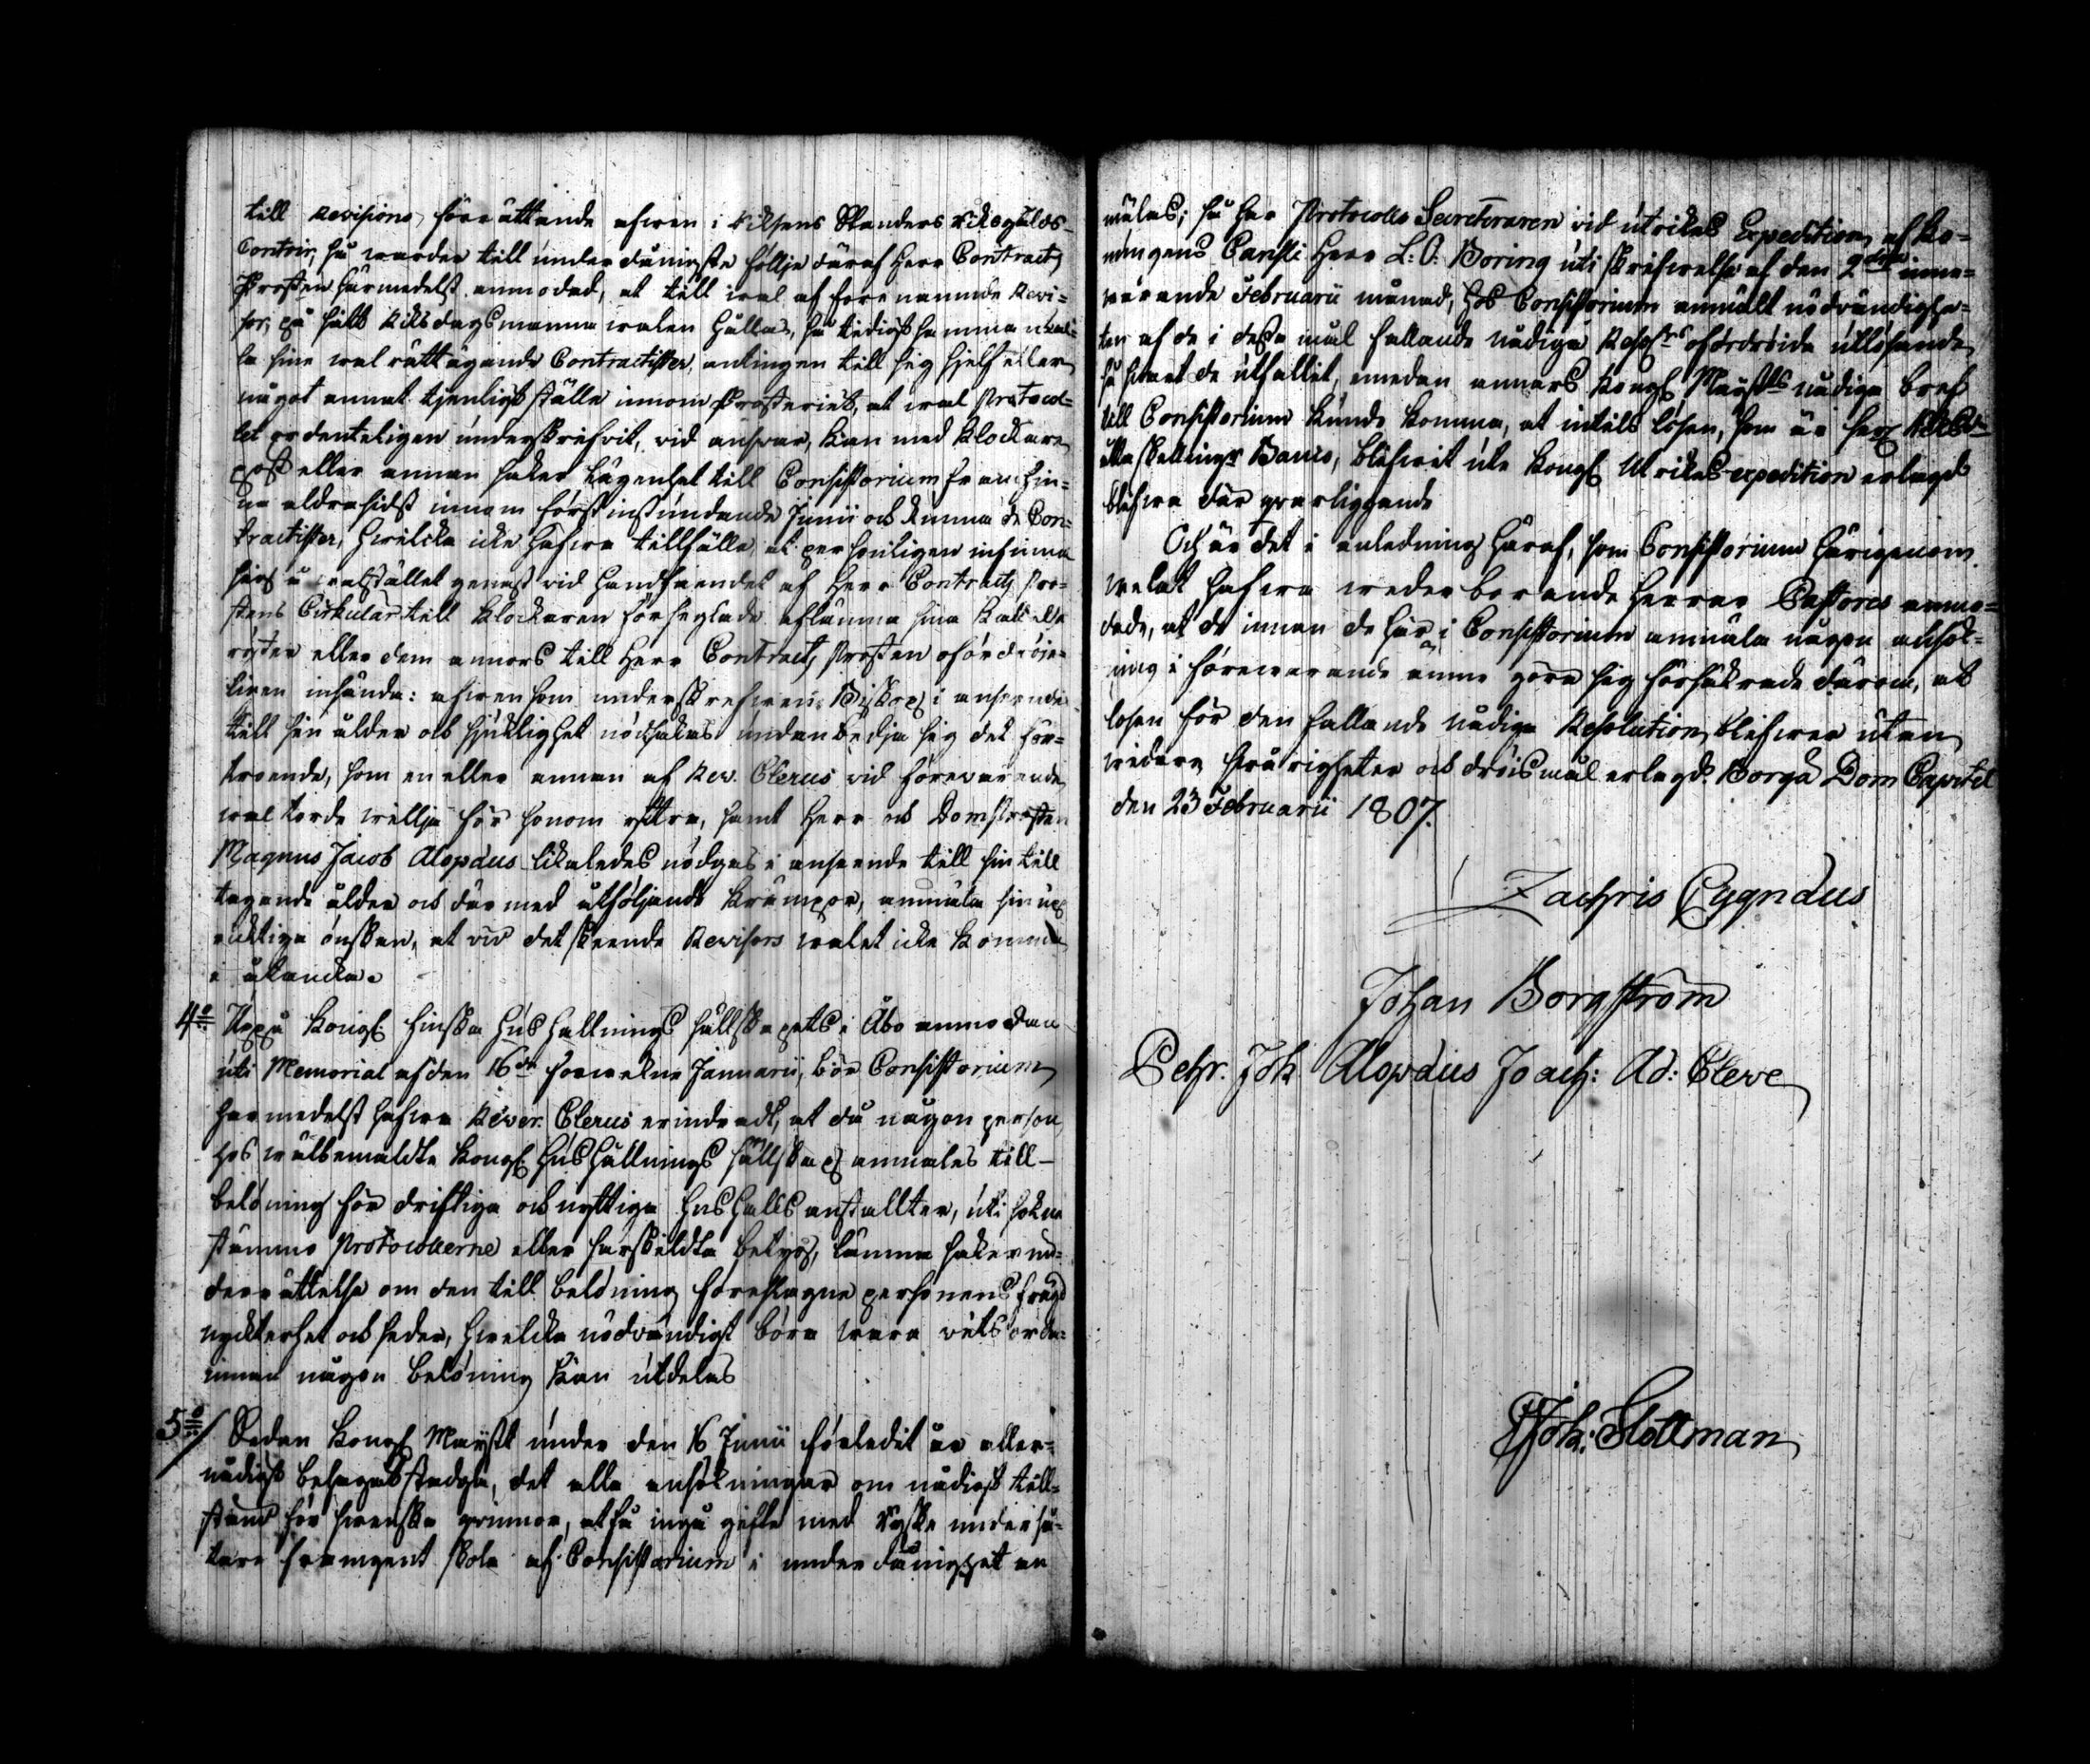 till Revisions förrättande afwen i Riksens Ständers Riksgälds-
Contoir, så warder till underdånigste följe däraf Herr Contracts
Prosten härmedelst anmodad, at till wal af förenämnde Revi-
sor, på sätt Riksdagsmanna walen hållas, så tidigt samman kal-
la sine wal rättägande Contractister, antingen till sig sjelf eller
något annat tjenligt ställe innom Prosteriet, at wal Protocol-
let ordenteligen underskrifvit, vid answar, kan med Klockare
post eller annan säker lägenhet till Consistorium framhin-
na aldrasidst innom först instundande Junii och kunna de Con-
tractister, hwilcka icke hafwa tillfälle at personligen infinna
sig å walstället genast vid handhafwandet af Herr Contracts Pro-
stens Cirkulär till Klockaren förseglade aflämna sina Kallade
röster eller dem annors till Herr Contracts Prosten ofördröje-
ligen insända: afwensom underskrefwen Biskop i anseende
till sin ålder och sjuklighet nödsakas undanbedja sig det för-
troende, som en eller annan af Rev. Clerus vid förewarande
wal torde willja för honom yttra, samt Herr och Domprosten
Magnus Jacob Alopæus likaledes nödgas i anseende till sin till
tagande ålder och därmed åtföljande krämpor, anmäla sin upp
ricktiga önskan, at vid det skeende Revisors walet icke komma
i åtancka.
4:o Uppå Kongl. Finska Hushållnings Sällskapets i Åbo anmodan
uti Memorial af den 16de sorwekne Januarii, bör Consistorium
härmedelst hafwa Rever. Clerus erindradt, at då någon person
hos wälbemäldte Kongl. Hushållnings Sällskap anmäles till-
belöning för driftiga och nyttiga Hushålls anstallter, uti Sokne
stämmo Protocollerne eller särskildta betyg, lämna säker un-
derrättelse om den till belöning föreslagne personens frägd
nyckterhet och seder, hwilcka nödvändigt böra wara vitsordade
innan någon belöning kan utdelas
5:o Sedan Kongl Mayst under den 16 Junii förledit år aller-
nådigst behagat stadga, det alla ansökningar om nådigt till-
stånd för swenska qvinnor, at få ingå gifte med Ryske underså-
tare framgent skola af Consistorium i underdånighet an
mälas; så har Protocolls Secreteraren vid utrikes Expedition af Ko-
nungens Cansli Herr L: O: Boring uti skrifwelse af den 2dra inne-
warande Februarii månad, hos Consistorium anmält nödvändighe-
ten af de i dessa mål fallande nådiga Resol:rs ofördröida utlösande
så snart de utfallit, emedan annars Kongl Maysts nådiga bref
till Consistorium kunde komma, at intils lösen, som är sex RiksD:r
åtta skellingr Banco, blifwit ute Kongl Utrikes-expedition erlagd
blifwa där qvarliggande
Och är det i anledning häraf, som Consistorium härigenom
welat hafwa wederborande Herrar Pastores anmo-
dade, at de innan de här i Consistorium anmäla någon ansök-
ning i förewarande ämne göra sig försäkrade därom, at
lösen för den fallande nådiga Resolution, blifwer utan
widare swårigheter och dröismål erlagd. Borgå Dom Capitel
den 23 Februarii 1807.
Zachris Cygnæus
Johan Borgström
Petr. Joh Alopæus Joach: Ad: Cleve
Joh: Slottman